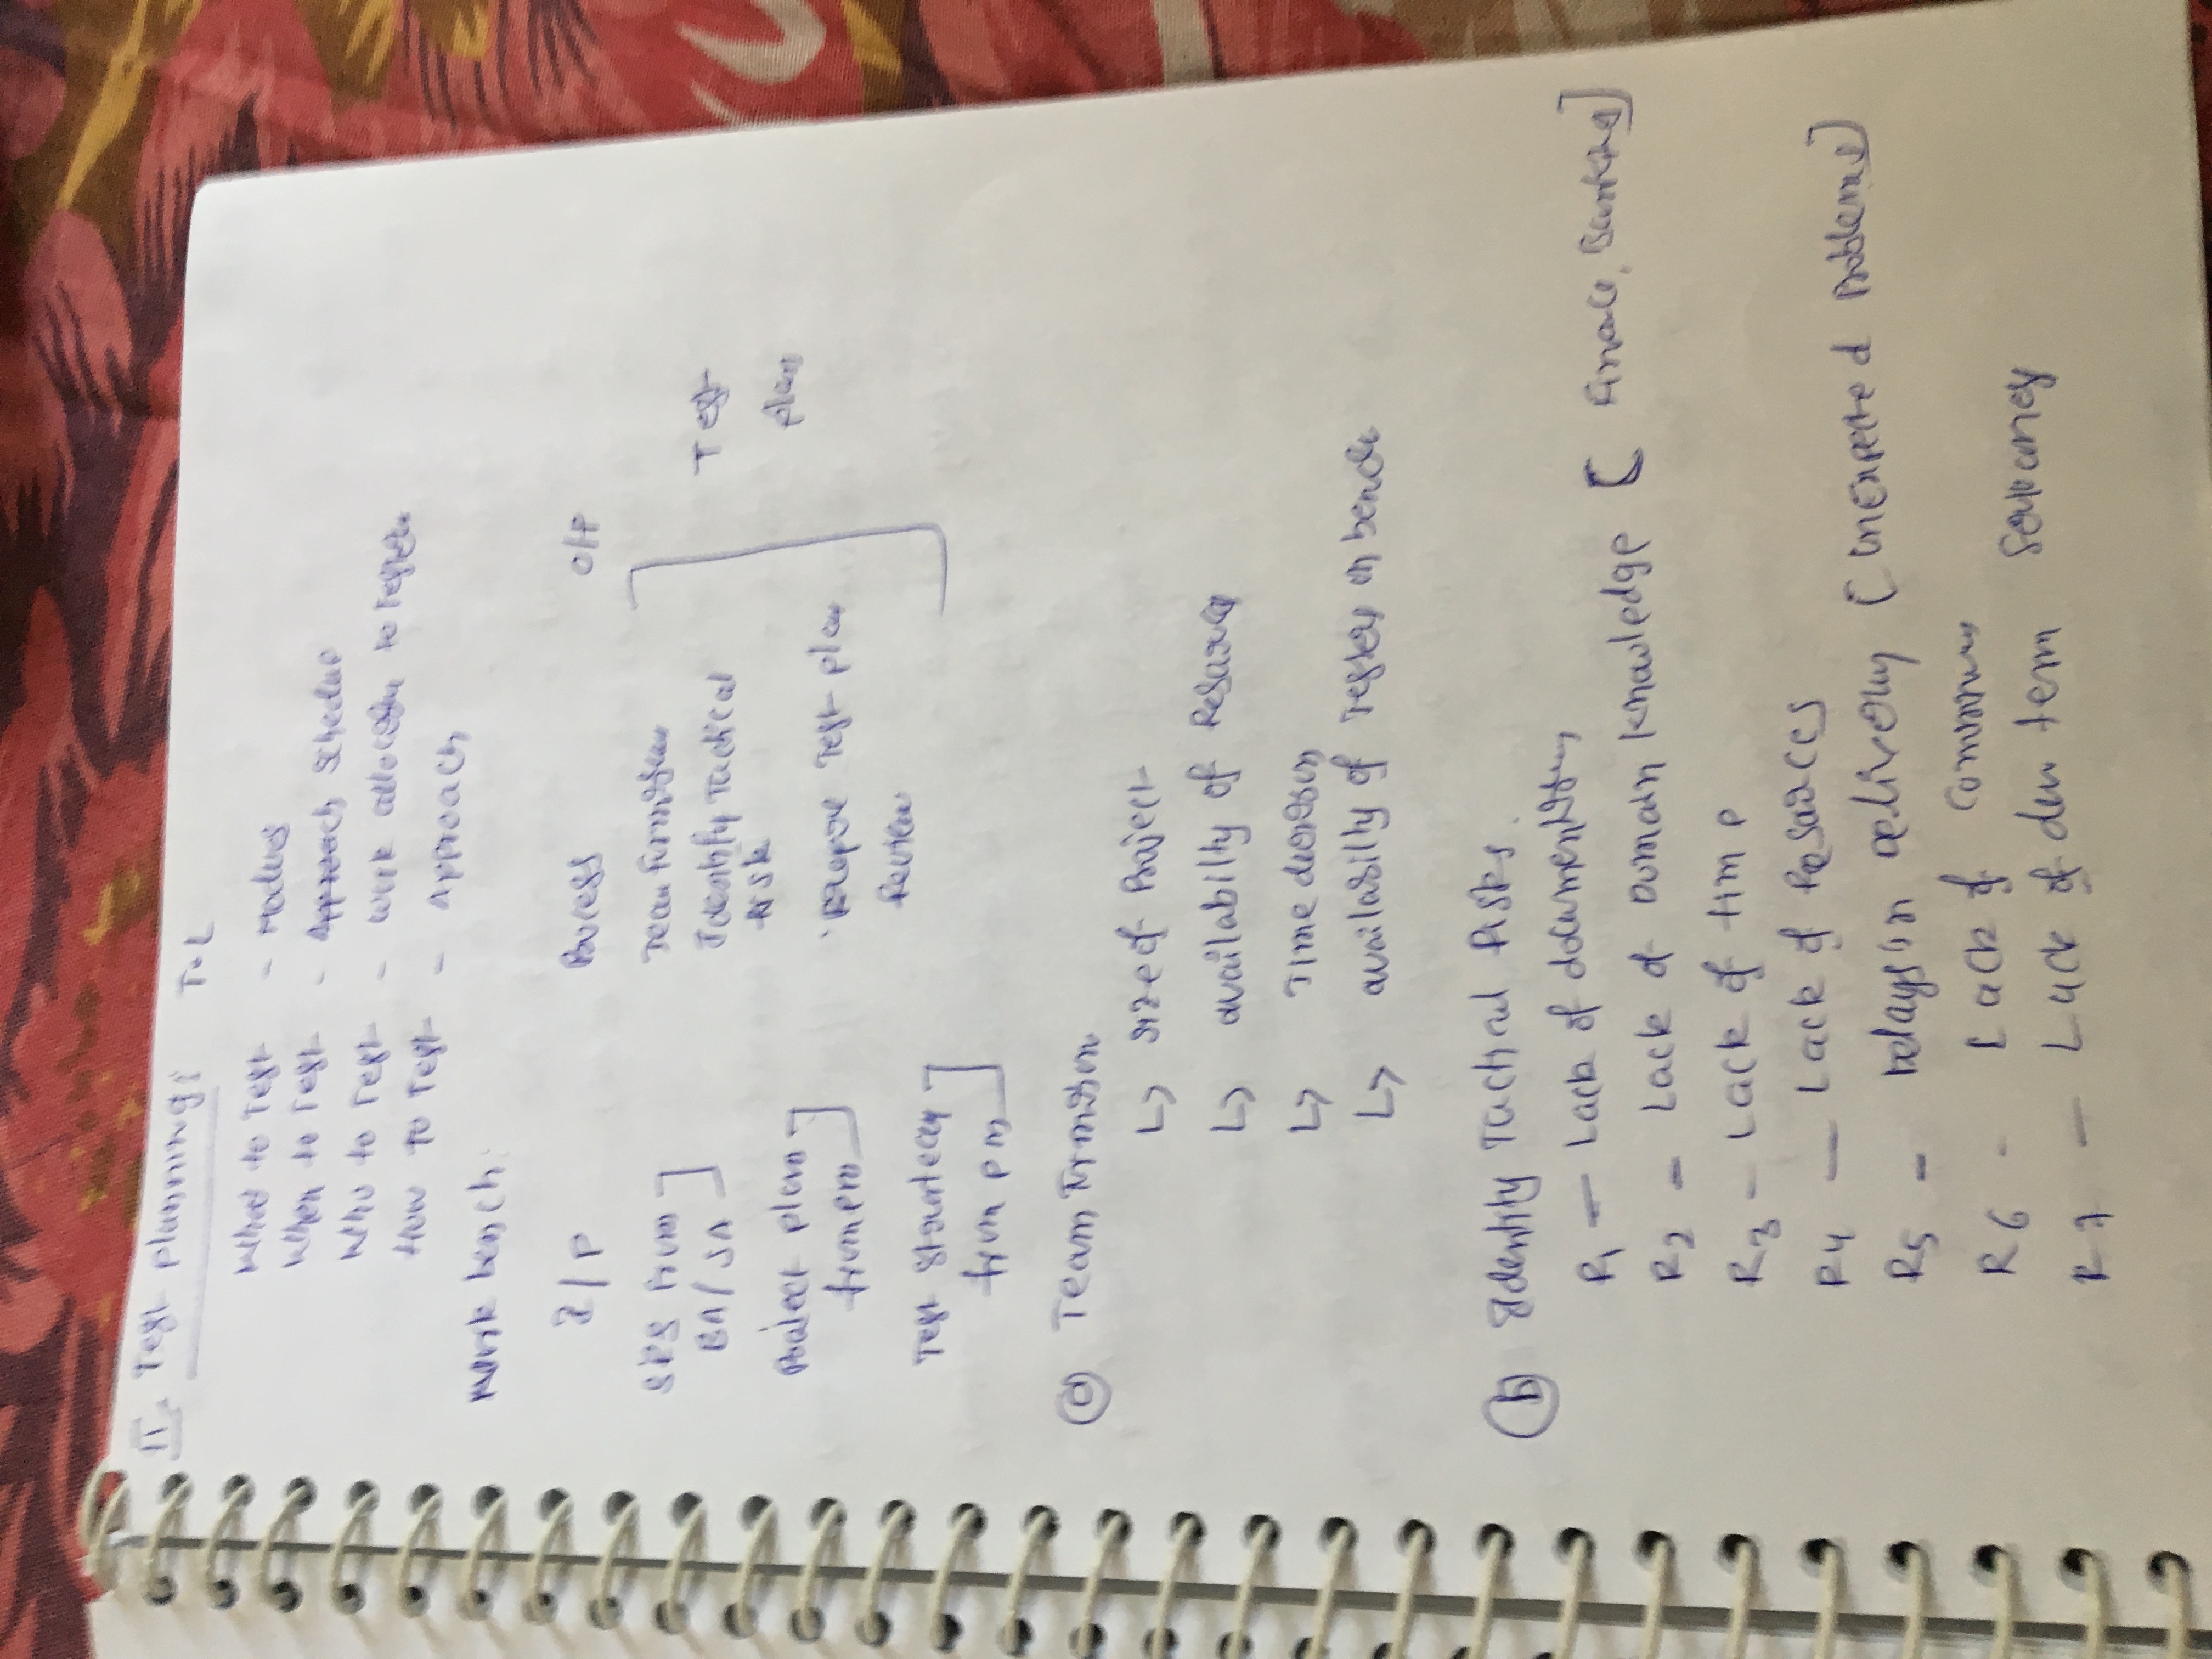 II. Test planning: T.L
What to Test - Modules
When to Test - Approach Schedule
Who to Test - work allocation to Testers
How To Test - Approach
Work bench:
I/P Process O/P
SRS from Team Formation
BA/SA Identify Tactical
risk
Test
Project plan plan
from pm Prepare Test plan
Review
Test Strategy
from pm
(a) Team Formation
↳ size of Project
↳ availabilty of Resource
↳ Time duration
↳ availabilty of Testers on bench
(b) Identify Tactical Risks.
R1 — Lack of documentation
R2 - Lack of Domain knowledge [Finance, Banking]
R3 - Lack of time
R4 — Lack of Resources
R5 - Delays in Delivery [unexpected Problems]
R6 - Lack of
R7 — Lack of dev team